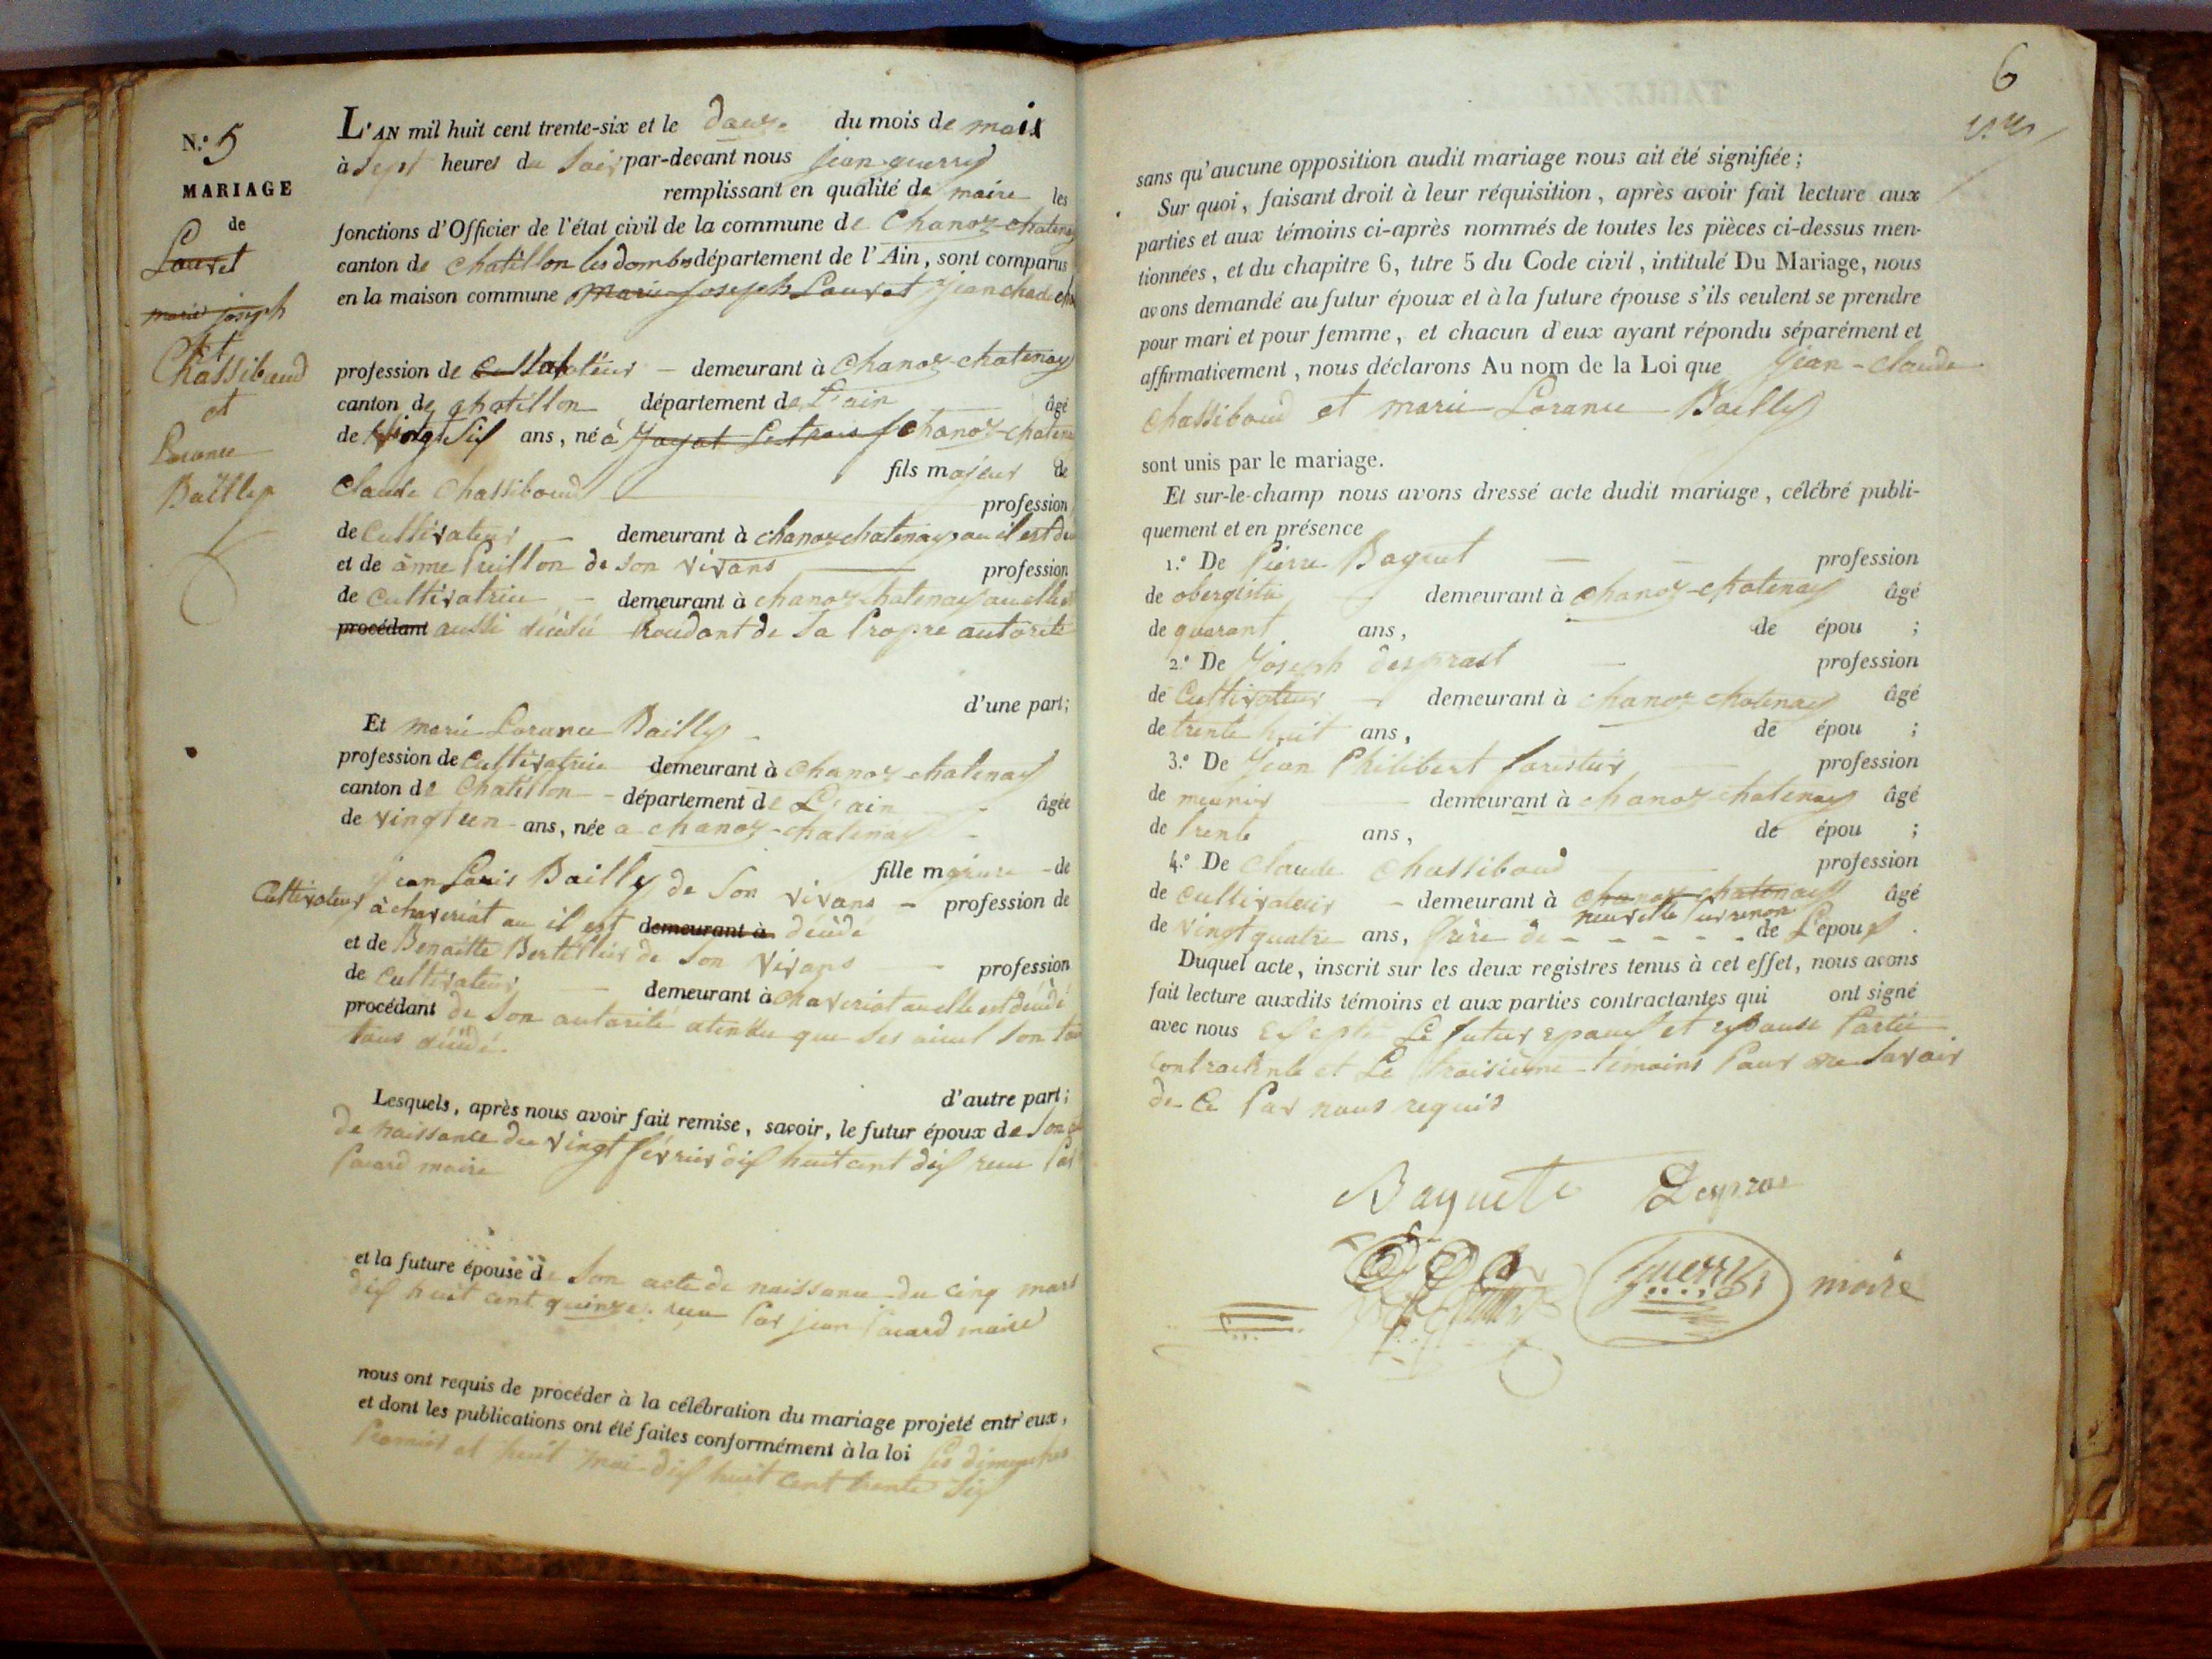 N.° 5
MARIAGE
de
Louvet
marie joseph
et
Chassiboud
et
Lorance
Bailly
L'AN mil huit cent trente-six et le douze du mois de mai
à Sept heures du Soir par-devant nous jean guerry
remplissant en qualité de maire les
fonctions d'Officier de l'état civil de la commune de Chanoz-chatenay
canton de chatillon les dombes département de l'Ain, sont comparus
en la maison commune marie joseph Louvet jean claude
profession de Cultivateur - demeurant à chanoz-chatenay
canton de chatillon département de L'ain âgé
de vingt Six ans, né à chanoz-chatenay
fils majeur de
Claude Chassiboud profession
de Cultivateur demeurant à chanoz chatenay ou il est
et de anne Puillon de Son vivans profession
de Cultivatrice - demeurant à chanoz chatenay ou elle
procédant aussi décédé de Sa Propre autorité
d'une part;
Et marie Lorance Bailly
profession de Cultivatrice demeurant à chanoz-chatenay
canton de Chatillon - département de L'ain âgée
de vingt un ans, née a chanoz-chatenay
fille majeure de
jean Louis Bailly de Son vivans - profession de
Cultivateur à chaveriat ou il est demeurant à décédé
et de Benoitte de Son vivans profession
de cultivateur demeurant à chaveriat ou elle est décédé
procédant de Son autorité atendu que Ses aieul Son tous
tous décédé.
d'autre part;
Lesquels, après nous avoir fait remise, savoir, le futur époux de Son
de naissance du vingt février dix huit cent dix reçu Par
Pacard maire
et la future épouse de Son acte de naissance du cinq mars
dix huit cent quinze reçu Par jean Pacard maire
nous ont requis de procéder à la célébration du mariage projeté entr'eux,
et dont les publications ont été faites conformément à la loi les dimanches
Premier et huit mai dix huit cent trente Six
6
sans qu'aucune opposition audit mariage nous ait été signifiée;
Sur quoi, faisant droit à leur réquisition, après avoir fait lecture aux
parties et aux témoins ci-après nommés de toutes les pièces ci-dessus men-
tionnées, et du chapitre 6, titre 5 du Code civil, intitulé Du Mariage, nous
avons demandé au futur époux et à la future épouse s'ils veulent se prendre
pour mari et pour femme, et chacun d'eux ayant répondu séparément et
affirmativement, nous déclarons Au nom de la Loi que jean-claude
chassiboud et marie Lorance Bailly
sont unis par le mariage.
Et sur-le-champ nous avons dressé acte dudit mariage, célébré publi-
quement et en présence
1.° De Pierre Baguet profession
de obergiste demeurant à chanoz-chatenay âgé
de quarant ans, de épou ;
2.° De joseph desprast profession
de Cultivateur demeurant à chanoz chatenay âgé
de trente huit ans, de épou ;
3.° De jean Philibert forestier profession
de meunier demeurant à chanoz chatenay âgé
de trente ans, de épou ;
4.° De Claude Chassiboud profession
de cultivateur - demeurant à chanoz chatenay âgé
neuville sur renon
de vingt quatre ans, frère de - - - - - de L'époux.
Duquel acte, inscrit sur les deux registres tenus à cet effet, nous avons
fait lecture auxdits témoins et aux parties contractantes qui ont signé
avec nous Le futur epoux et epouse Partie
contractente et Le troisième témoins Pour ne Savoir
de Ce Par nous requis
Baguet Despras
guerry maire